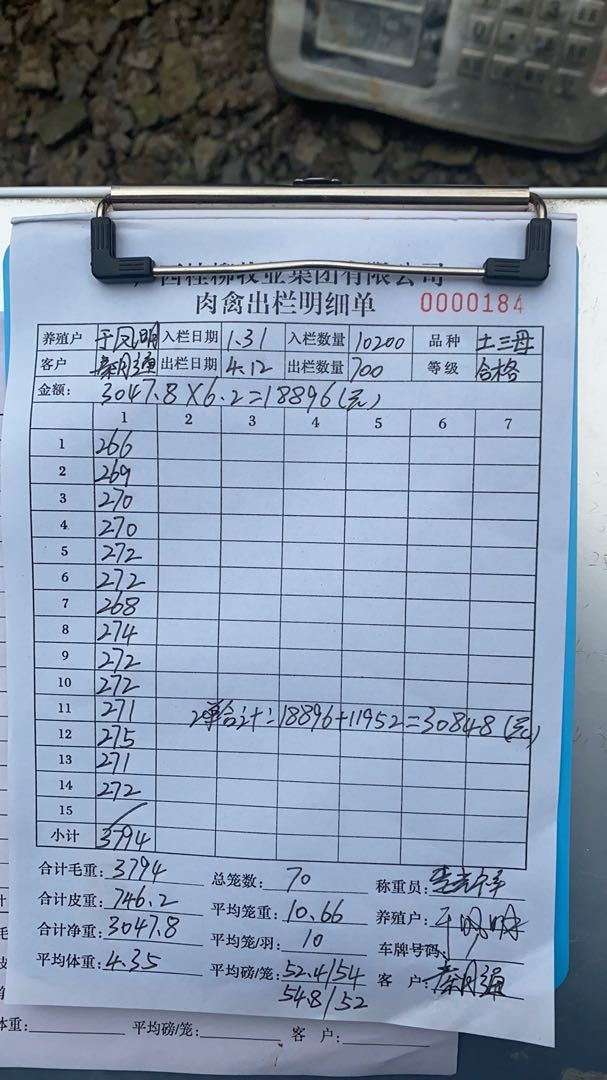 西桂柳牧业集团有限公司
肉禽出栏明细单 0000184
养殖户 于凤明 入栏日期 1.31 入栏数量 10200 品种 土三母
客户 秦明强 出栏日期 4.12 出栏数量 700 等级 合格
金额: 3047.8×6.2=18896(元)
1 2 3 4 5 6 7
1 266
2 269
3 270
4 270
5 272
6 272
7 268
8 274
9 272
10 272
11 271 2单合计:18896+11952=30848(元)
12 275
13 271
14 272
15
小计 3794
合计毛重: 3794 总笼数: 70 称重员:
合计皮重: 746.2 平均笼重: 10.66 养殖户:
合计净重: 3047.8 平均笼/羽: 10 车牌号码:
平均体重: 4.35 平均磅/笼: 52.4/54 客 户: 秦明强
54.8/52
体重: 平均磅/笼: 客 户: